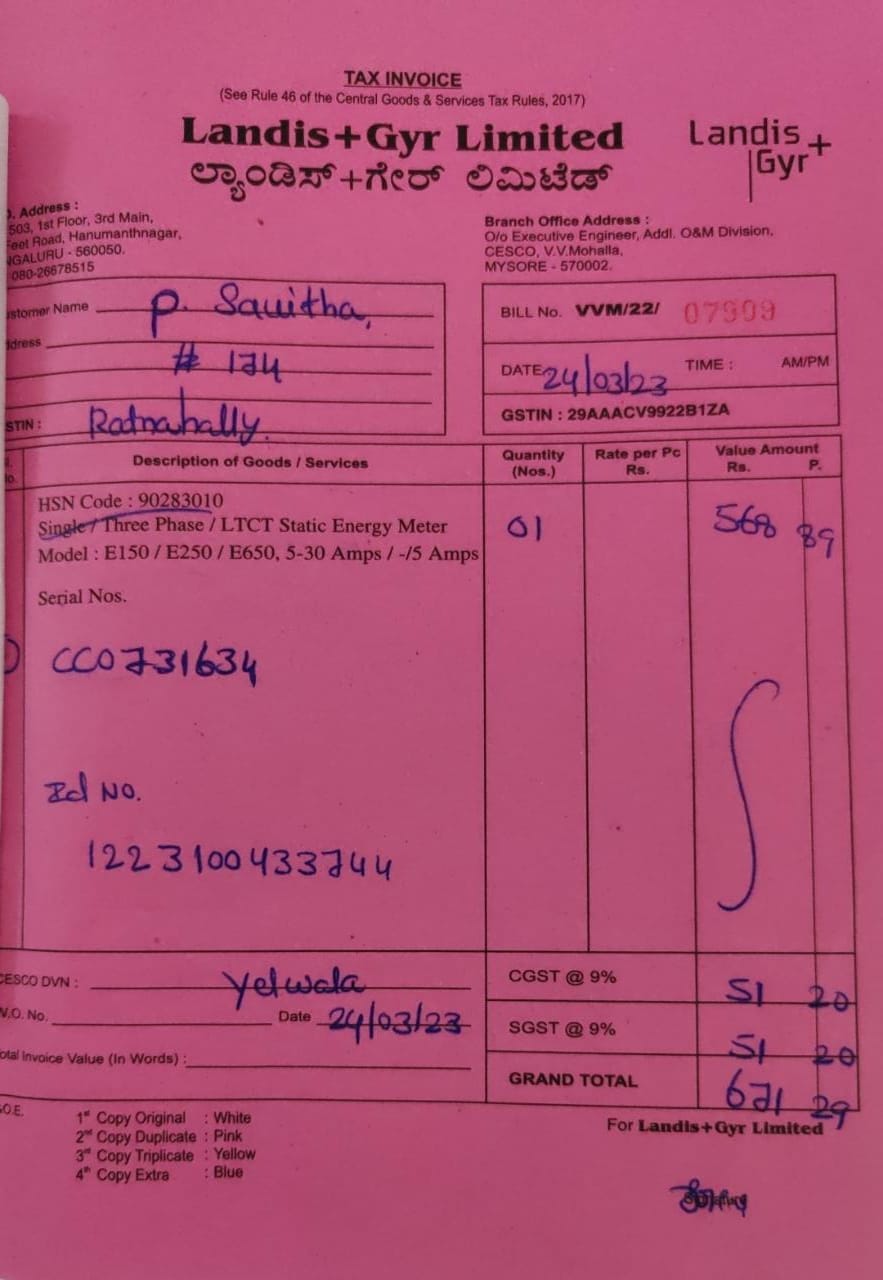 TAX INVOICE
(See Rule 46 of the Central Goods & Services Tax Rules, 2017)
Landis+Gyr Limited
ಲ್ಯಾಂಡಿಸ್+ಗೇರ್ ಲಿಮಿಟೆಡ್
Landis+
Gyr
. Address :
503, 1st Floor, 3rd Main,
eet Road, Hanumanthnagar,
GALURU - 560050.
080-26678515
Branch Office Address :
O/o Executive Engineer, Addl. O&M Division,
CESCO, V.V.Mohalla,
MYSORE - 570002.
ustomer Name P. Savitha,
ddress # 174
STIN : Ratnahally.
BILL No. VVM/22/ 07909
DATE 24/03/23 TIME : AM/PM
GSTIN : 29AAACV9922B1ZA
o. Description of Goods / Services Quantity (Nos.) Rate per Pc Rs. Value Amount Rs. P.
HSN Code : 90283010
Single / Three Phase / LTCT Static Energy Meter 01 568 89
Model : E150 / E250 / E650, 5-30 Amps / -/5 Amps
Serial Nos.
CC0731634
Id No.
1223100433744
CESCO DVN : Yelwala
W.O. No. Date 24/03/23
otal Invoice Value (In Words) :
CGST @ 9% 51 20
SGST @ 9% 51 20
GRAND TOTAL 671 29
.O.E.
1st Copy Original : White
2nd Copy Duplicate : Pink
3rd Copy Triplicate : Yellow
4th Copy Extra : Blue
For Landis+Gyr Limited